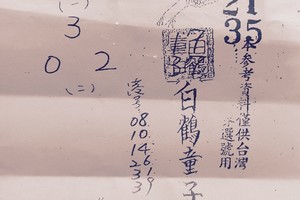 (一)
3
0 2
(二)
08
10
14
26
33
39
白鶴童子
21
35
本參考資料僅供台灣
選號用